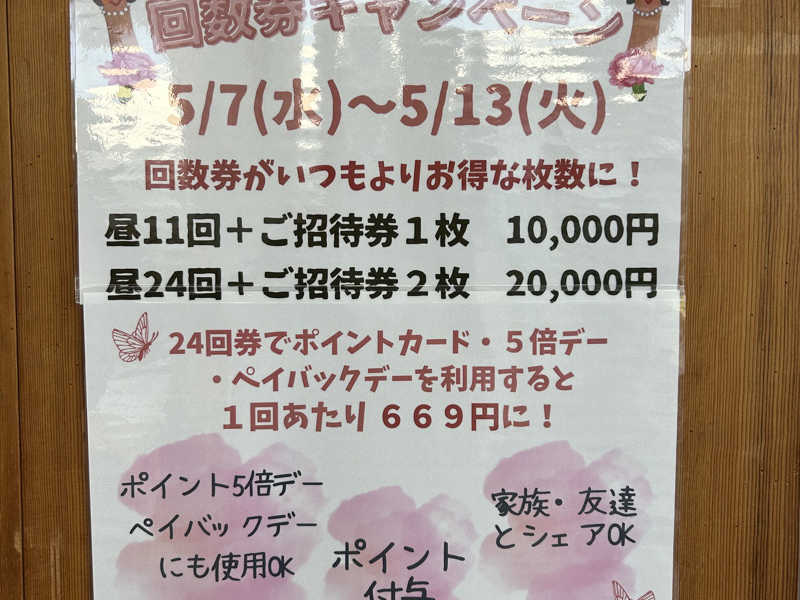 回数券キャンペーン
5/7(水)〜5/13(火)
回数券がいつもよりお得な枚数に！
昼11回＋ご招待券１枚　10,000円
昼24回＋ご招待券２枚　20,000円
24回券でポイントカード・５倍デー
・ペイバックデーを利用すると
１回あたり６６９円に！
ポイント5倍デー
ペイバックデー
にも使用OK
ポイント
付与
家族・友達
とシェアOK